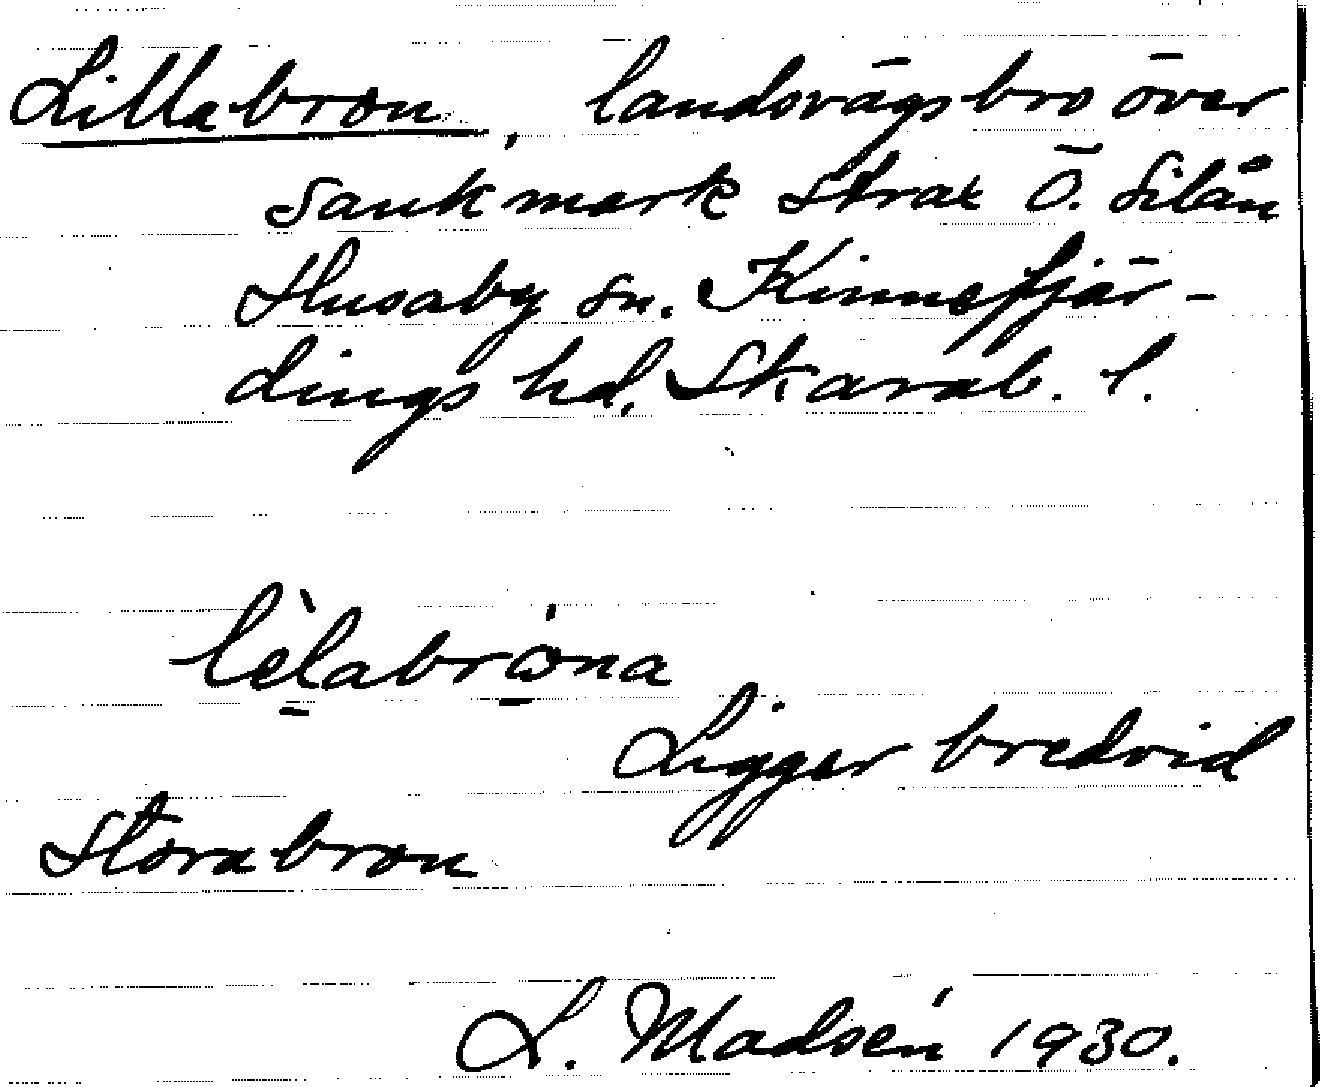 Lillabron, landsvägsbro över
sankmark strax Ö. Silån
Husaby sn. Kinnefjär-
dings hd. Skarab. l.
lèlabrona
Ligger bredvid
Storabron
L. Madsén 1930.